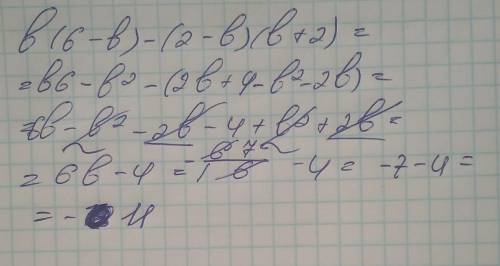 в(6-в)-(2-в)(в+2)=
=в6-в²-(2в+4-в²-2в)=
=6в-в²-2в-4+в²+2в=
=6в-4= -4= -7-4=
=-11